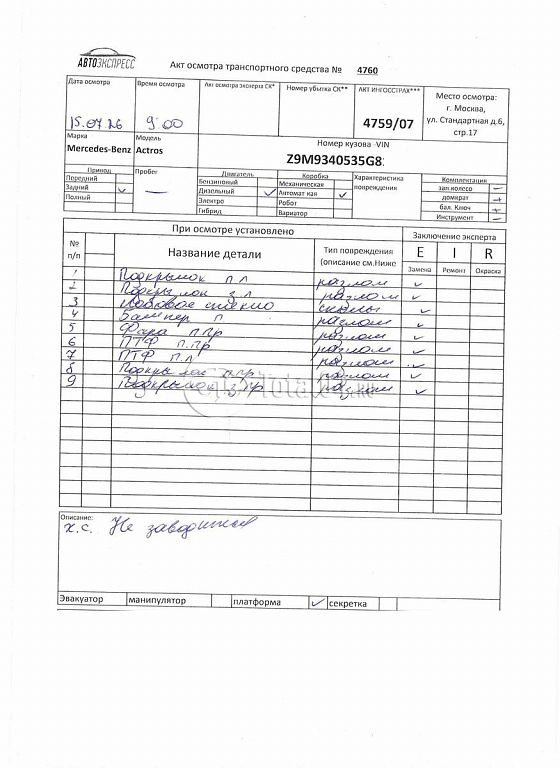 АВТОЭКСПРЕСС
Акт осмотра транспортного средства № 4760
Дата осмотра
15.07.26
Время осмотра
9:00
Акт осмотра эксперта СК*
Номер убытка СК**
АКТ ИНГОССТРАХ***
4759/07
Место осмотра:
г. Москва,
ул. Стандартная д.6,
стр.17
Марка
Mercedes-Benz
Модель
Actros
Номер кузова -VIN
Z9M9340535G8
Привод
Передний
Задний ✓
Полный
Пробег
—
Двигатель
Бензиновый
Дизельный ✓
Электро
Гибрид
Коробка
Механическая
Автомат кая ✓
Робот
Вариатор
Характеристика
повреждения
Комплектация
зап.колесо —
домкрат +
бал. Ключ +
Инструмент —
При осмотре установлено
Заключение эксперта
№ п/п
Название детали
Тип повреждения
(описание см.Ниже
E I R
Замена Ремонт Окраска
1 Подкрылок п л разлом ✓
2 Подкрылок з л разлом ✓
3 Лобовое стекло сколы ✓
4 Бампер п разлом ✓
5 Фара п пр разлом ✓
6 ПТФ п.пр разлом ✓
7 ПТФ п л разлом ✓
8 Подкрылок п пр разлом ✓
9 Подкрылок з пр разлом ✓
Описание:
х.с. Не заводится
Эвакуатор манипулятор платформа ✓ секретка